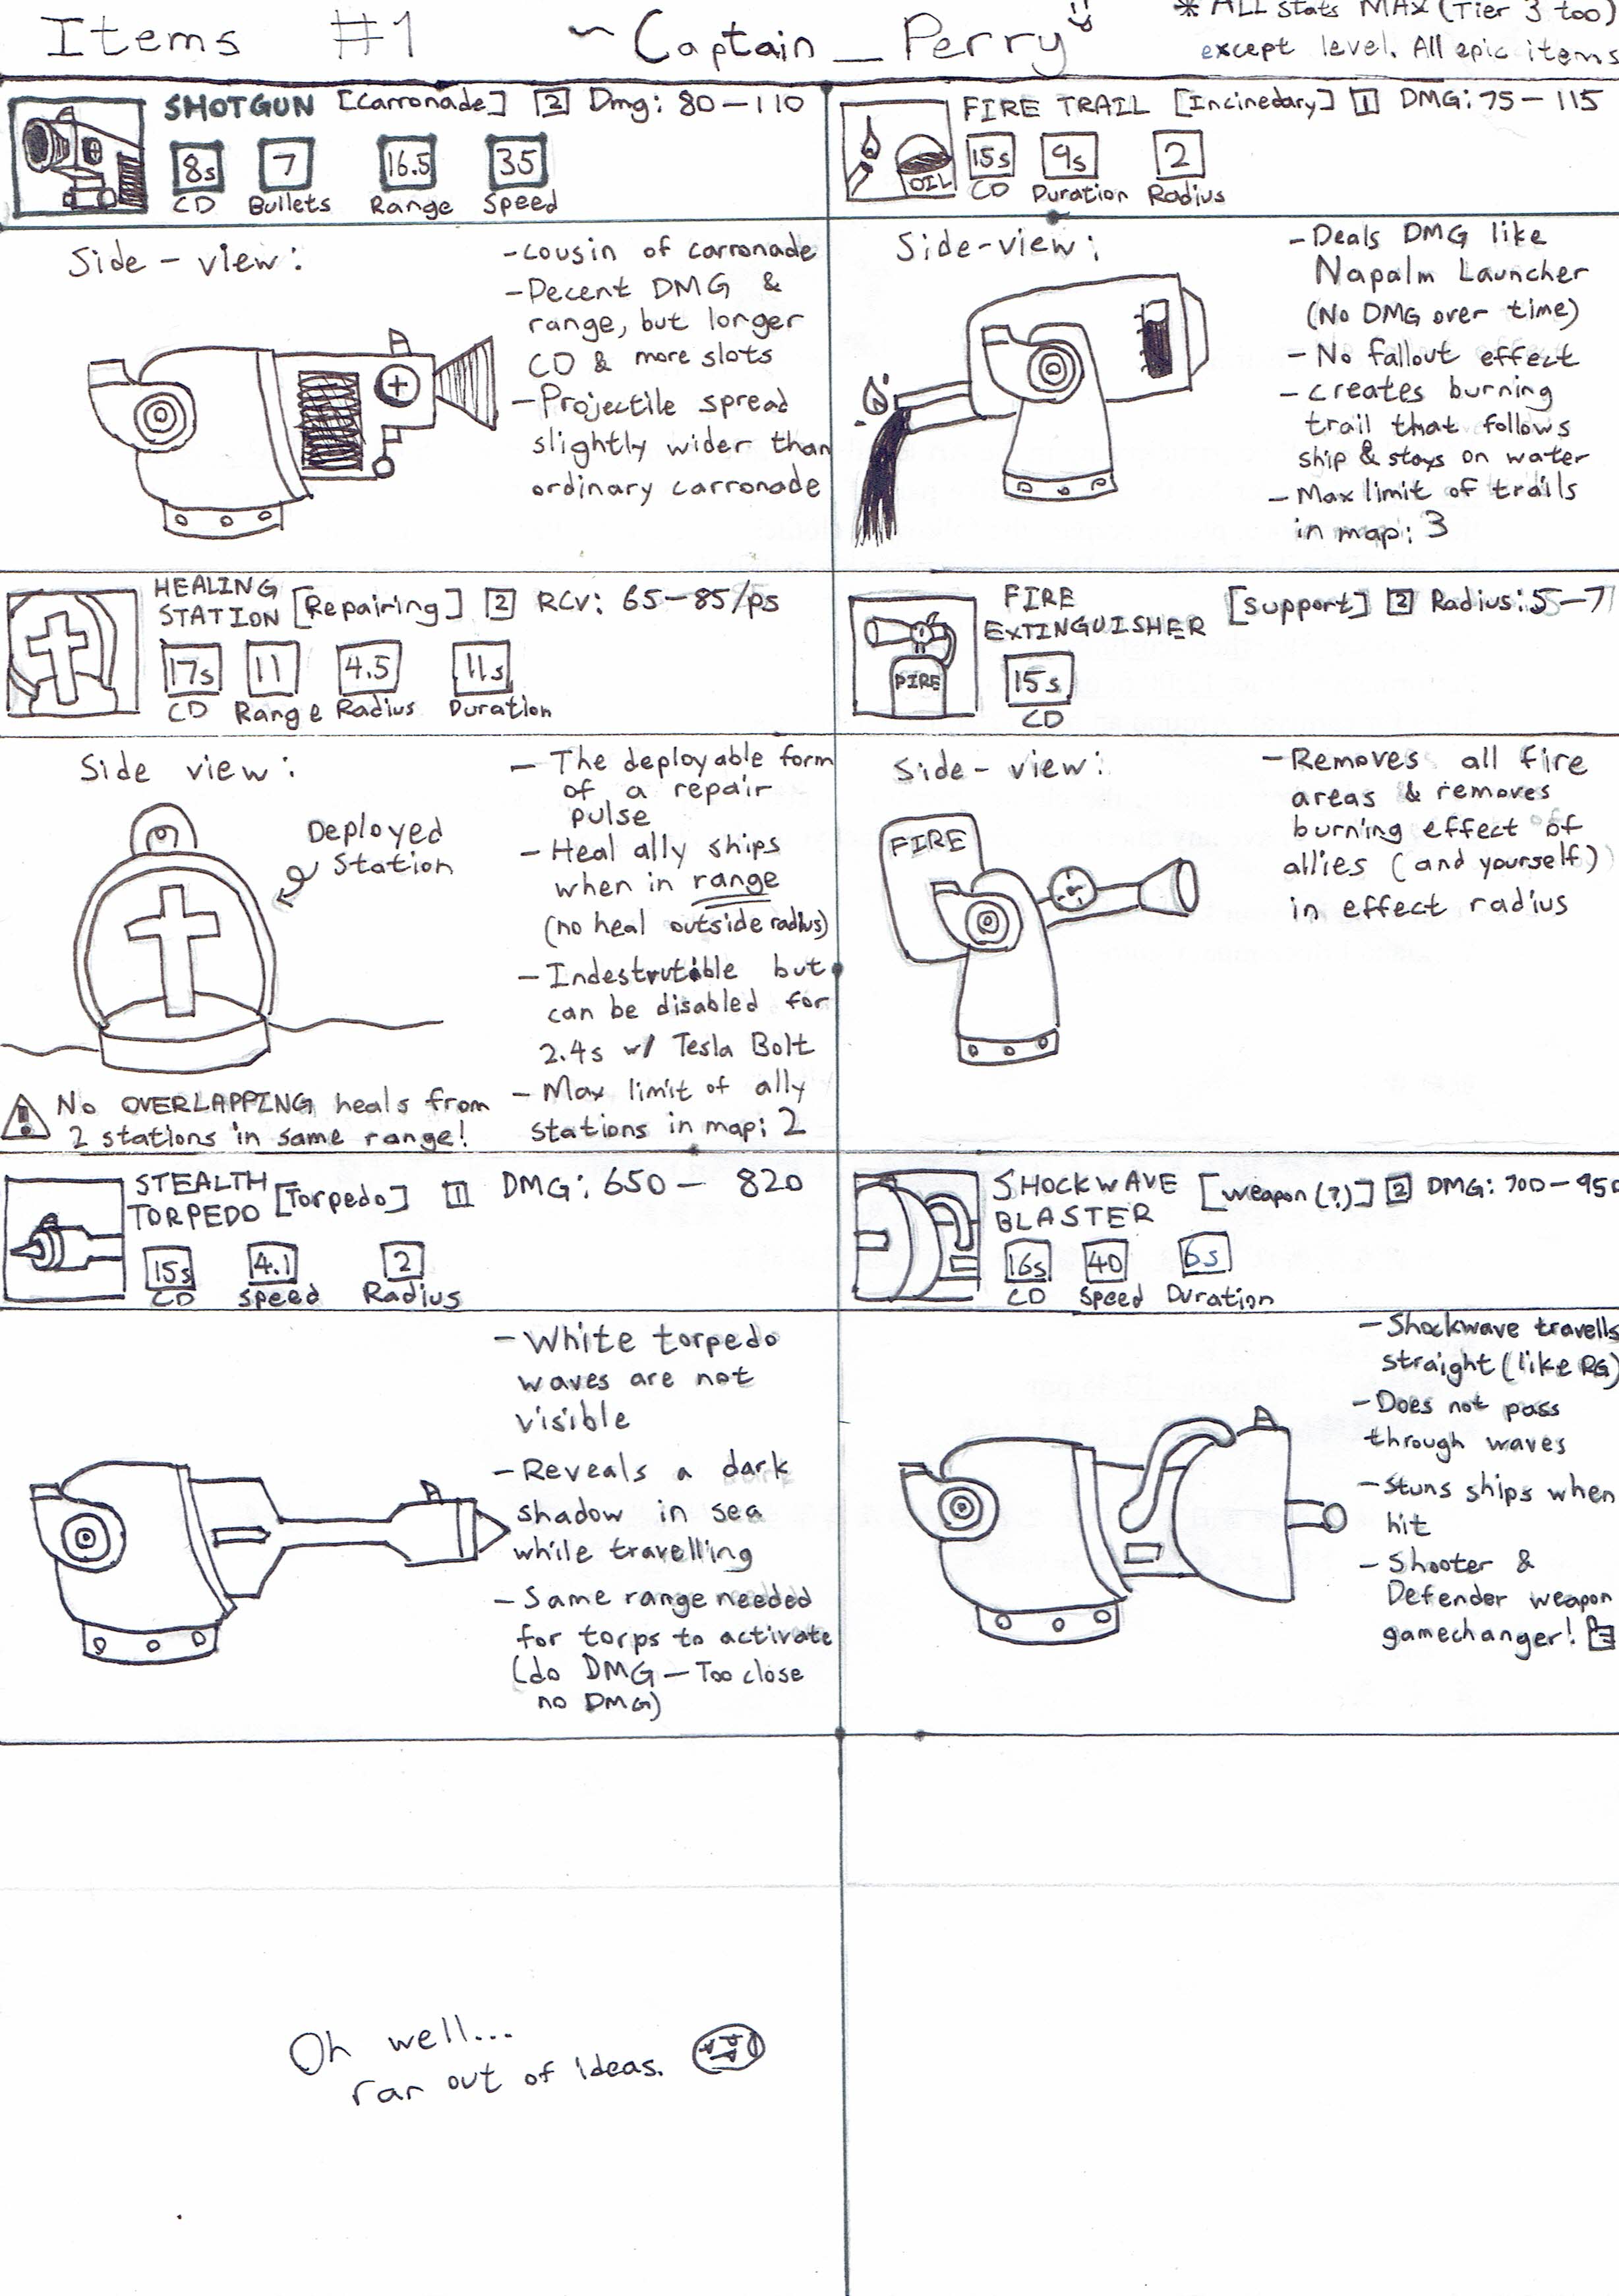 Items #1 ~ Captain_Perry
* ALL stats MAX (Tier 3 too)
except level. All epic items
SHOTGUN [Carronade] 2 Dmg: 80-110
8s 7 16.5 35
CD Bullets Range Speed
Side-view:
- cousin of carronade
- Decent DMG &
range, but longer
CD & more slots
- Projectile spread
slightly wider than
ordinary carronade
FIRE TRAIL [Incinedary] 1 DMG: 75-115
OIL
15s 9s 2
CD Duration Radius
Side-view:
- Deals DMG like
Napalm Launcher
(No DMG over time)
- No fallout effect
- creates burning
trail that follows
ship & stays on water
- Max limit of trails
in map: 3
HEALING
STATION [Repairing] 2 RCV: 65-85/ps
17s 11 4.5 11s
CD Range Radius Duration
Side view:
Deployed
Station
- The deployable form
of a repair
pulse
- Heal ally ships
when in range
(no heal outside radius)
- Indestrutible but
can be disabled for
2.4s w/ Tesla Bolt
- Max limit of ally
stations in map: 2
! No OVERLAPPING heals from
2 stations in same range!
FIRE
EXTINGUISHER [support] 2 Radius: 5-7
FIRE
15s
CD
Side-view:
FIRE
- Removes all fire
areas & removes
burning effect of
allies (and yourself)
in effect radius
STEALTH
TORPEDO [Torpedo] 1 DMG: 650-820
15s 4.1 2
CD Speed Radius
- White torpedo
waves are not
visible
- Reveals a dark
shadow in sea
while travelling
- Same range needed
for torps to activate
(do DMG - Too close
no DMG)
SHOCKWAVE
BLASTER [weapon(?)] 2 DMG: 700-950
16s 40 6s
CD Speed Duration
- Shockwave travells
straight (like RG)
- Does not pass
through waves
- Stuns ships when
hit
- Shooter &
Defender weapon
gamechanger!
Oh well...
ran out of ideas.